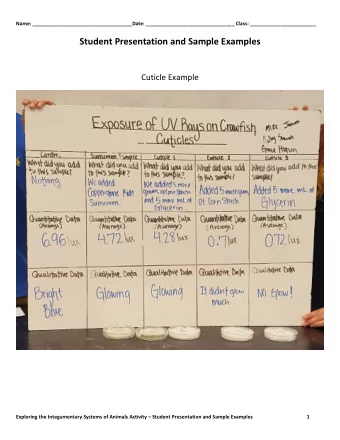 Name: ______ Date: ______ Class: ______
Student Presentation and Sample Examples
Cuticle Example
Exposure of UV Rays on Crawfish
Cuticles
Control
What did you add
to this sample?
Nothing
Quantitative Data
(Average)
6.96 lux
Qualitative Data
Bright
Blue
Sunscreen Sample
What did you add
to this sample?
We added
Coppertone Kids
Sunscreen.
Quantitative Data
(Average)
4.72 lux
Qualitative Data
Glowing
Cuticle 1
What did you add
to this sample?
We added 5 more
grams of corn starch
and 5 more mL of
Glycerin.
Quantitative Data
(Average)
4.28 lux
Qualitative Data
Glowing
Cuticle 2
What did you add
to this sample?
Added 5 more gram
of Corn Starch
Quantitative Data
(Average)
0.7 lux
Qualitative Data
It didn't glow
much
Cuticle 3
What did you add to this
sample?
Added 5 more mL of
Glycerin
Quantitative Data
(Average)
072 lux
Qualitative Data
No Glow!
Exploring the Integumentary Systems of Animals Activity – Student Presentation and Sample Examples 1